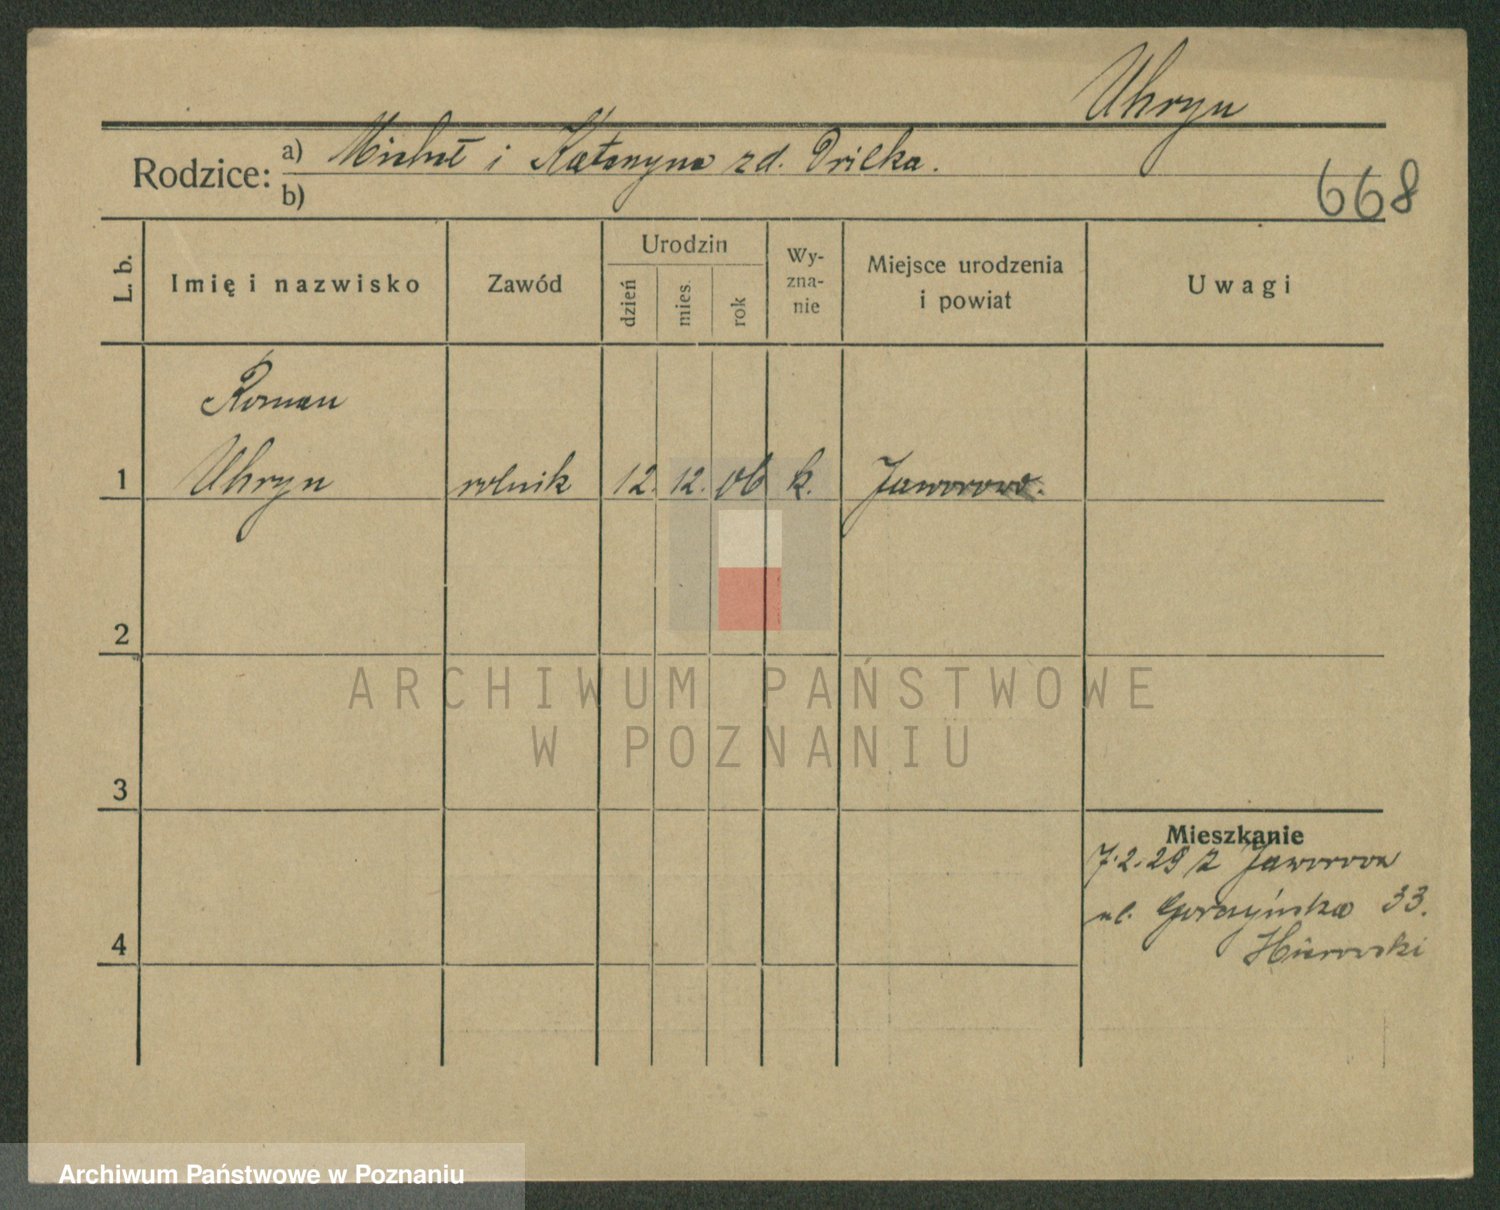 Uhryn
Rodzice: a) Michał i Katarzyna zd. Drilka.
b)
668
L. b.
Imię i nazwisko
Zawód
Urodzin
dzień
mies.
rok
Wy-
zna-
nie
Miejsce urodzenia
i powiat
Uwagi
Roman
1 Uhryn rolnik 12. 12. 06 k. Jaworowo.
2
ARCHIWUM PAŃSTWOWE
W POZNANIU
3
Mieszkanie
7.2.29 z Jaworowa
ul. Gorczyńska 33.
4
Archiwum Państwowe w Poznaniu